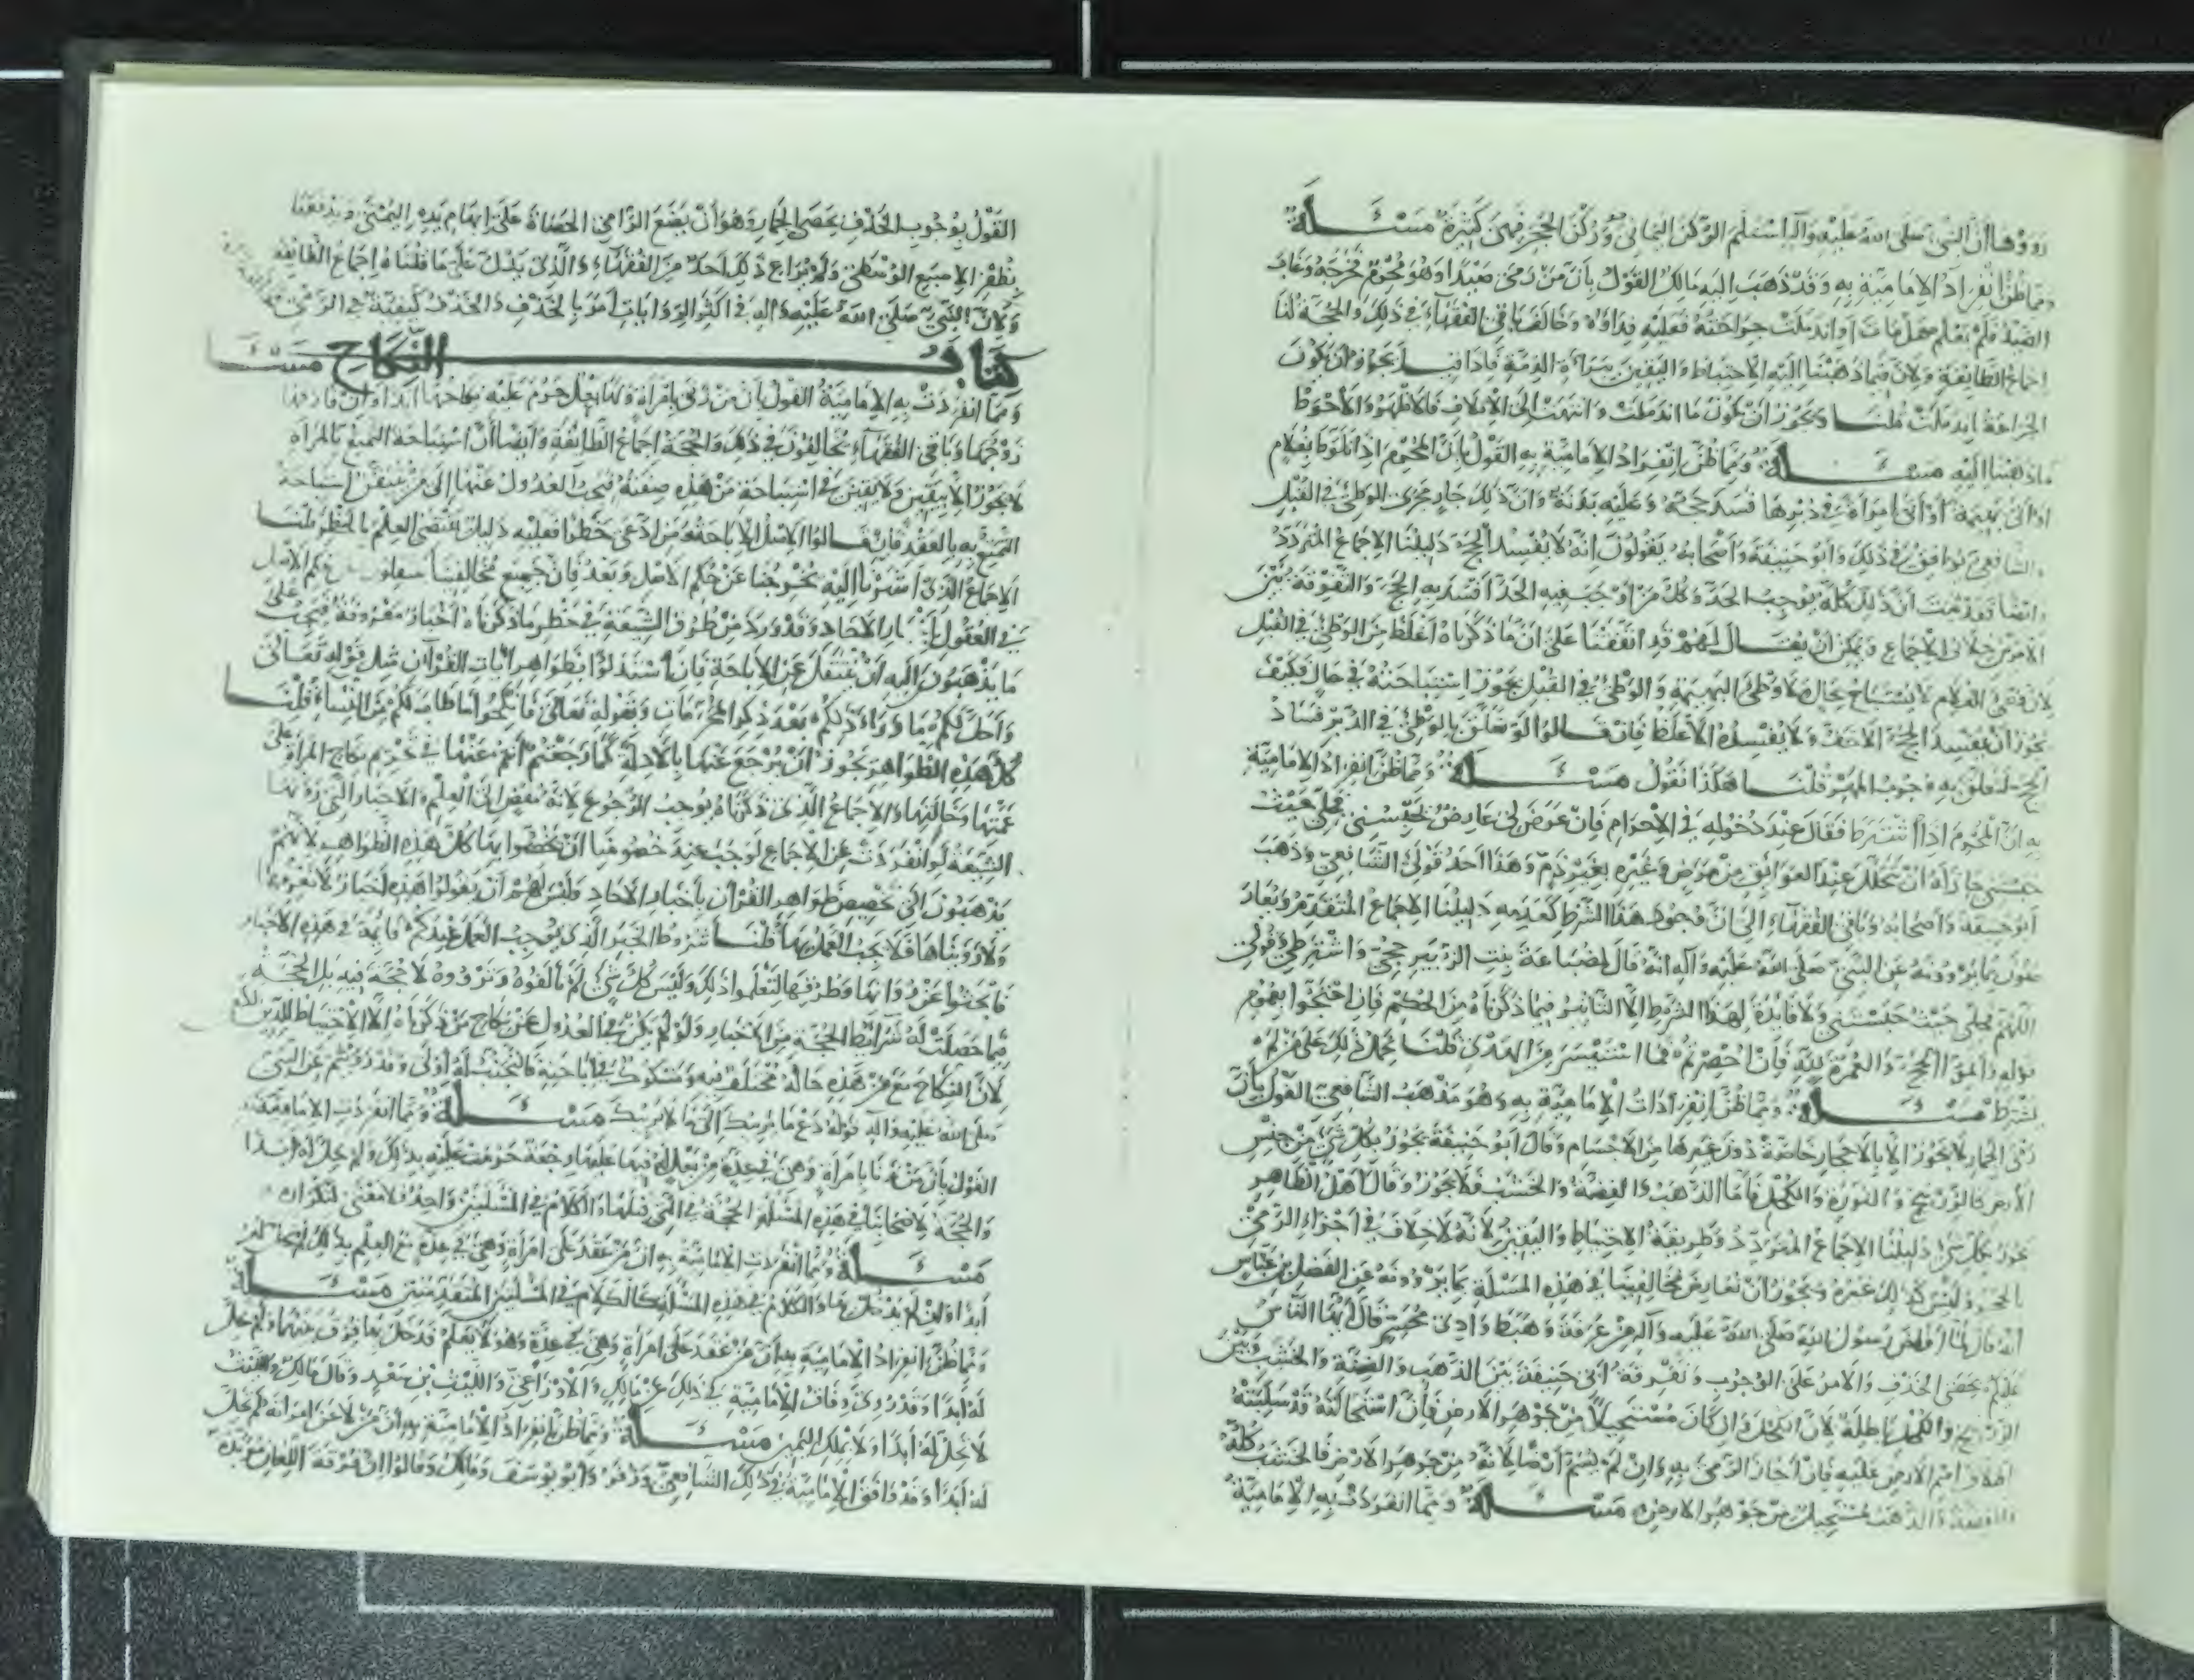 رووها أن النبي صلى الله عليه وآله استلم الركن اليماني وركن الحجر فهي كثيرة مسئلة
ومما ظن انفراد الإمامية به وقد ذهب إليه مالك القول بأن من رمى صيدا وهو محرم فجرحه وغاب
الصيد فلم يعلم هل مات أو اندملت جراحته فعليه فداؤه وخالف باقي الفقهاء في ذلك والحجة لنا
إجماع الطائفة ولأن فيما ذهبنا إليه الاحتياط واليقين ببراءة الذمة فإذا قيل يجوز أن يكون
الجراحة اندملت قلنا ويجوز أن يكون ما اندملت وانتهت إلى الإتلاف فالأظهر والأحوط
ما ذهبنا إليه مسئلة ومما ظن انفراد الإمامية به القول بأن المحرم إذا تلوط بغلام
أو أتى بهيمة أو أتى امرأة في دبرها فسد حجه وعليه بدنة وأن ذلك جار مجرى الوطئ في القبل
والشافعي يوافق في ذلك وأبو حنيفة وأصحابه يقولون إنه لا يفسد الحج دليلنا الإجماع المتردد
وأيضا فقد ثبت أن ذلك كله يوجب الحد وكل من أوجب فيه الحد أفسد به الحج والتفرقة بين
الأمرين خلاف الإجماع ويمكن أن يقال لهم قد اتفقنا على أن ما ذكرناه أغلظ من الوطئ في القبل
لأن وطئ الغلام لا يستباح بحال ولا وطئ البهيمة والوطئ في القبل يجوز استباحته في حال فكيف
يجوز أن يفسد الحج الأخف ولا يفسده الأغلظ فإن قالوا لو تعلق بالوطئ في الدبر فساد
الحج لتعلق به وجوب المهر قلنا هكذا نقول مسئلة ومما ظن انفراد الإمامية
به أن المحرم إذا اشترط فقال عند دخوله في الإحرام فإن عرض لي عارض يحبسني فحلي حيث
حبستني جاز له أن يتحلل عند العوائق من مرض وغيره بغير دم وهذا أحد قولي الشافعي وذهب
أبو حنيفة وأصحابه وباقي الفقهاء إلى أن وجود هذا الشرط كعدمه دليلنا الإجماع المتقدم ويعارضون
بما يروونه عن النبي صلى الله عليه وآله أنه قال لضباعة بنت الزبير حجي واشترطي وقولي
اللهم فحلي حيث حبستني ولا فائدة لهذا الشرط إلا التأثير فيما ذكرناه من الحكم فإن احتجوا بعموم
قوله وأتموا الحج والعمرة لله فإن أحصرتم فما استيسر من الهدي قلنا نحمل ذلك على من لم
يشترط مسئلة ومما ظن انفرادات الإمامية به وهو مذهب الشافعي القول بأن
رمي الجمار لا يجوز إلا بالأحجار خاصة دون غيرها من الأجسام وقال أبو حنيفة يجوز بكل شيء من جنس
الأرض كالزرنيخ والنورة والكحل فأما الذهب والفضة والخشب فلا يجوز وقال أهل الظاهر
يجوز بكل شيء دليلنا الإجماع المتردد وطريقة الاحتياط واليقين لأنه لا خلاف في إجزاء الرمي
بالحجر وليس كذلك غيره ويجوز أن نعارض مخالفينا في هذه المسئلة بما يروونه عن الفضل بن عباس
أنه قال لما أفاض رسول الله صلى الله عليه وآله من عرفة وهبط وادي محسر قال أيها الناس
عليكم بحصى الخذف والأمر على الوجوب وتفرقة أبي حنيفة بين الذهب والفضة والخشب وبين
الزرنيخ والكحل باطلة لأن الكحل وإن كان مستحيلا من جوهر الأرض فإن استحالته قد سلبته
إطلاق اسم الأرض عليه فإن أجاز الرمي به وإن لم يسم أرضا لأنه من جوهر الأرض فالخشب كله
والفضة والذهب مستحيل من جوهر الأرض مسئلة ومما انفردت به الإمامية
القول بوجوب الخذف بحصى الجمار وهو أن يضع الرامي الحصاة على إبهام يده اليمنى ويدفعها
بظفر الإصبع الوسطى ولم يراع ذلك أحد من الفقهاء والذي يدل على ما قلناه إجماع الطائفة
ولأن النبي صلى الله عليه وآله في أكثر الروايات أمر بالخذف والخذف كيفية في الرمي
كتاب النكاح مسئلة
ومما انفردت به الإمامية القول بأن من زنى بامرأة ولها بعل حرم عليه نكاحها أبدا وإن فارقها
زوجها وباقي الفقهاء يخالفون في ذلك والحجة إجماع الطائفة وأيضا أن استباحة التمتع بالمرأة
لا يجوز إلا بيقين ولا يقين في استباحة من هذه صفته فيجب العدول عنها إلى من يتيقن استباحة
التمتع به بالعقد فإن قالوا الأصل الإباحة ومن ادعى حظرا فعليه دليل يقتضي العلم بالحظر قلنا
الإجماع الذي أشرنا إليه يخرجنا عن حكم الأصل وبعد فإن جميع مخالفينا ينقلون عن حكم الأصل
في العقول بأخبار الآحاد وقد ورد من طرق الشيعة في حظر ما ذكرناه أخبار معروفة فيجب على
ما يذهبون إليه أن ينتقل عن الإباحة فإن استدلوا بظواهر آيات القرآن مثل قوله تعالى
وأحل لكم ما وراء ذلكم بعد ذكر المحرمات وبقوله تعالى فانكحوا ما طاب لكم من النساء قلنا
كل هذه الظواهر يجوز أن يرجع عنها بالأدلة كما رجعتم أنتم عنها في تحريم نكاح المرأة على
عمتها وخالتها والإجماع الذي ذكرناه يوجب الرجوع لأنه مفض إلى العلم والأخبار التي روتها
الشيعة لو انفردت عن الإجماع لوجب عند خصومنا أن يخصوا بها كل هذه الظواهر لأنهم
يذهبون إلى تخصيص ظواهر القرآن بأخبار الآحاد وليس لهم أن يقولوا هذه أخبار لا نعرفها
ولا رويناها فلا يجب العمل بها قلنا شروط الخبر الذي يوجب العمل عندكم قائمة في هذه الأخبار
فابحثوا عن رواتها وطرقها لتعلموا ذلك وليس كل شيء لم تألفوه وترووه لا حجة فيه بل الحجة
فيما حصلت له شرائط الحجة من الأخبار ولو لم يكن في العدول عن نكاح من ذكرناه إلا الاحتياط للدين
لأن النكاح مع من هذه حاله مختلف فيه ومشكوك في إباحته فالتجنب له أولى وقد رويتم عن النبي
صلى الله عليه وآله قوله دع ما يريبك إلى ما لا يريبك مسئلة ومما انفردت الإمامية
القول بأن من زنا بامرأة وهي في عدة من بعل له فيها عليها رجعة حرمت عليه بذلك ولم تحل له أبدا
والحجة لأصحابنا في هذه المسئلة الحجة في التي قبلها والكلام في المسئلتين واحد فلا معنى لتكراره
مسئلة ومما انفردت الإمامية به أن من عقد على امرأة وهي في عدة مع العلم بذلك لم تحل له
أبدا وإن لم يدخل بها والكلام في هذه المسئلة كالكلام في المسئلتين المتقدمتين مسئلة
ومما ظن انفراد الإمامية به أن من عقد على امرأة وهي في عدة وهو لا يعلم فدخل بها فرق بينهما ولم تحل
له أبدا وقد روي وفاق الإمامية في ذلك عن مالك والأوزاعي والليث بن سعد وقال مالك والليث
لا تحل له أبدا ولا بملك اليمين مسئلة ومما ظن انفراد الإمامية به أن من لاعن امرأته لم تحل
له أبدا وقد وافق الإمامية في ذلك الشافعي وزفر وأبو يوسف ومالك وقالوا إن فرقة اللعان مؤبدة